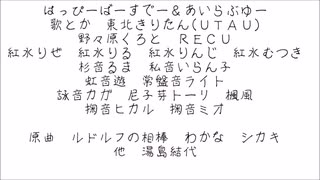 はっぴーばーすでー＆あいらぶゆー
歌とか　東北きりたん(UTAU)
野々原くろと　RECU
紅水りぜ　紅水りる　紅水りんご　紅水むつき
杉音るま　私音いらん子
虹音遊　常盤音ライト
詠音カガ　尼子芽トーリ　楓風
掬音ヒカル　掬音ミオ
原曲　ルドルフの相棒　わかな　シカキ
他　湯島結代